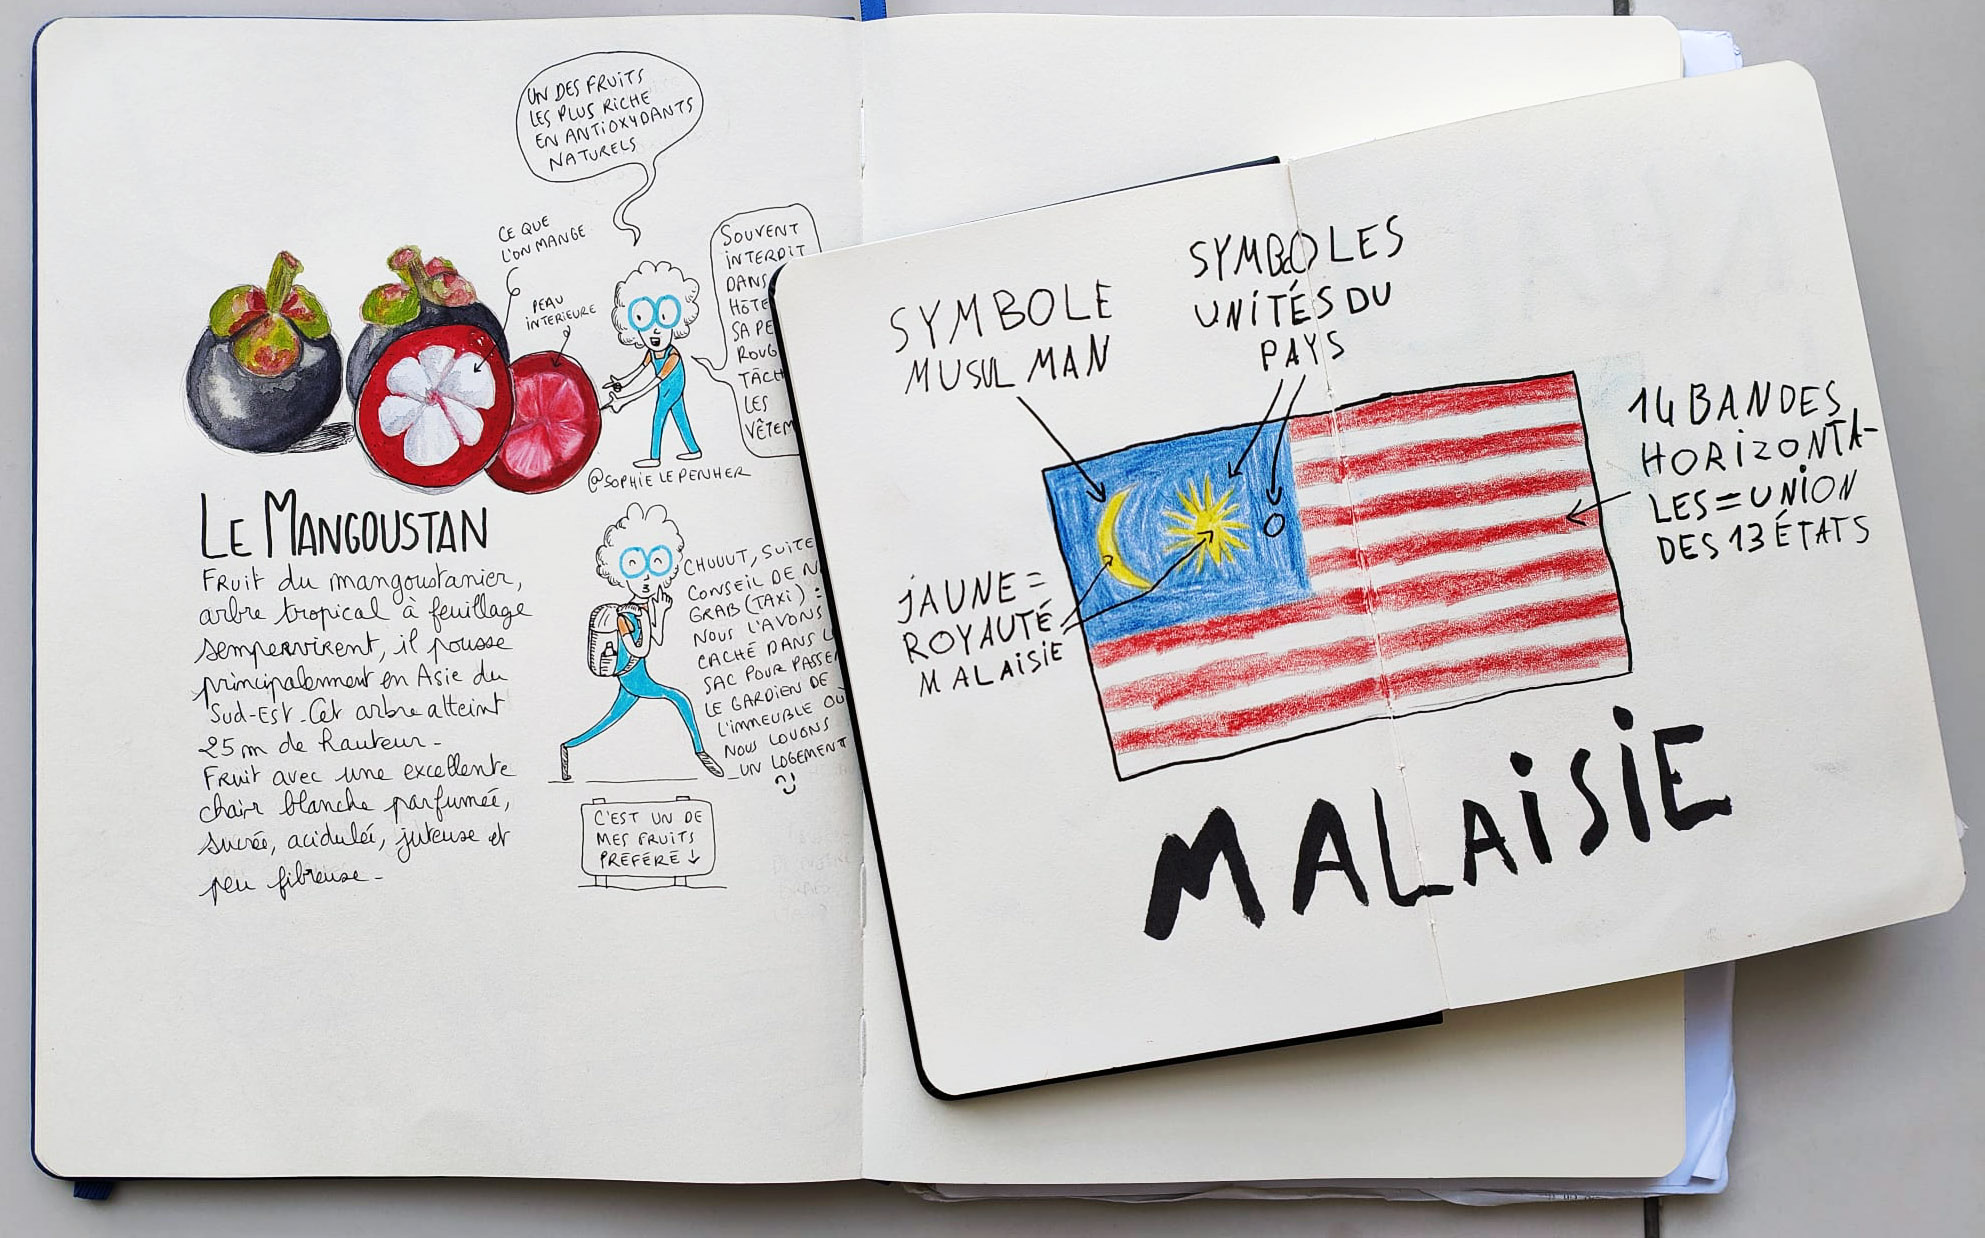 UN DES FRUITS
LES PLUS RICHE
EN ANTIOXYDANTS
NATURELS
CE QUE
L'ON MANGE
PEAU
INTERIEURE
SOUVENT
INTERDIT
DANS
HÔTE
SA PE
ROUG
TÂCH
LES
VÊTEM
@SOPHIE LE PENHER
LE MANGOUSTAN
Fruit du mangoustanier,
arbre tropical à feuillage
sempervirent, il pousse
principalement en Asie du
Sud-Est. Cet arbre atteint
25 m de hauteur.
Fruit avec une excellente
chair blanche parfumée,
sucrée, acidulée, juteuse et
peu fibreuse.
CHUUUT, SUITE
CONSEIL DE N
GRAB (TAXI) :
NOUS L'AVONS
CACHÉ DANS L
SAC POUR PASSER
LE GARDIEN DE
L'IMMEUBLE OÙ
NOUS LOUONS
UN LOGEMENT
C'EST UN DE
MES FRUITS
PRÉFÉRÉ ↓
SYMBOLE
MUSULMAN
SYMBOLES
UNITÉS DU
PAYS
14 BANDES
HORIZONTA-
LES = UNION
DES 13 ÉTATS
JAUNE =
ROYAUTÉ
MALAISIE
MALAISIE